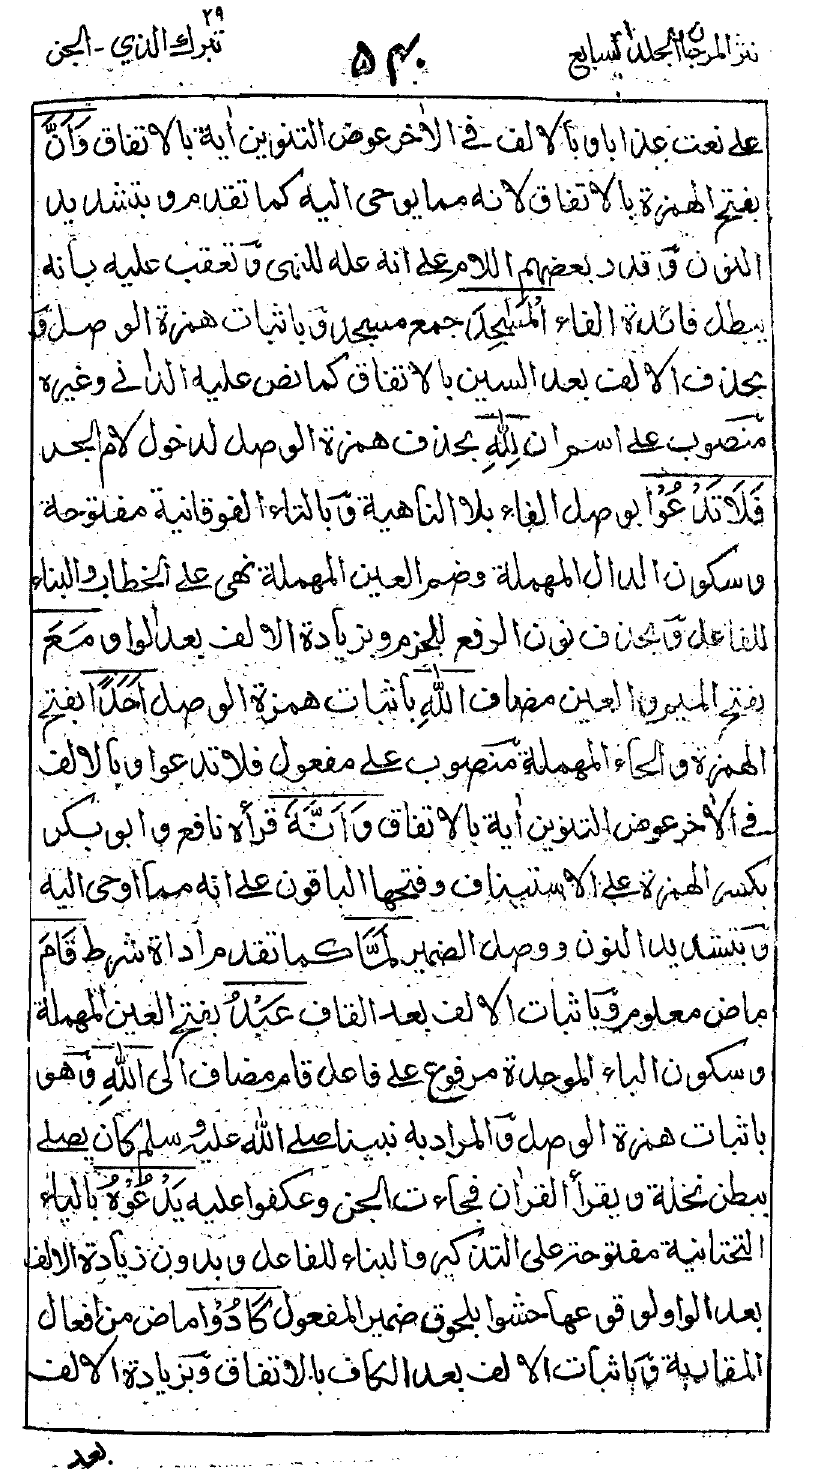 نثر المرجان المجلد السابع
۵۴۰
۲۹
تبرك الذي - الجن
على نعت عذابا و بالالف في الاٰخر عوض التنوين اٰية بالاتفاق وَاَنَّ
بفتح الهمزة بالاتفاق لانه مما يوحى اليه كما تقدم و بتشديد
النون و قدر بعضهم اللام على انه علة للنهى و تعقب عليه بانه
يبطل فائدة الفاء الْمَسٰجِدَ جمع مسجد و باثبات همزة الوصل و
بحذف الالف بعد السين بالاتفاق كما نص عليه الداني وغيره
منصوب على اسم ان لِلّٰهِ بحذف همزة الوصل لدخول لام الجر
فَلَا تَدْعُوْا بوصل الفاء بلا الناهية و بالتاء الفوقانية مفتوحة
و سكون الدال المهملة وضم العين المهملة نهى على الخطاب والبناء
للفاعل و بحذف نون الرفع للجزم و بزيادة الالف بعد الواو مَعَ
بفتح الميم و العين مضاف اللّٰهِ باثبات همزة الوصل اَحَدًا بفتح
الهمزة و الحاء المهملة منصوب على مفعول فلا تدعوا و بالالف
في الاٰخر عوض التنوين اٰية بالاتفاق وَاَنَّهٗ قرأه نافع و ابو بكر
بكسر الهمزة على الاستيناف و فتحها الباقون على انه مما اوحى اليه
و بتشديد النون و وصل الضمير لَمَّا كما تقدم اداة شرط قَامَ
ماض معلوم و باثبات الالف بعد القاف عَبْدُ بفتح العين المهملة
و سكون الباء الموحدة مرفوع على فاعل قام مضاف الى اللّٰهِ و هو
باثبات همزة الوصل و المراد به نبينا صلى الله عليه و سلم كان يصلى
ببطن نخلة و يقرأ القراٰن فجاءت الجن و عكفوا عليه يَدْعُوْهُ بالياء
التحتانية مفتوحة على التذكير و البناء للفاعل و بدون زيادة الالف
بعد الواو لوقوعها حشوا بلحوق ضمير المفعول كَادُوْا ماض من افعال
المقاربة و باثبات الالف بعد الكاف بالاتفاق و بزيادة الالف
بعد